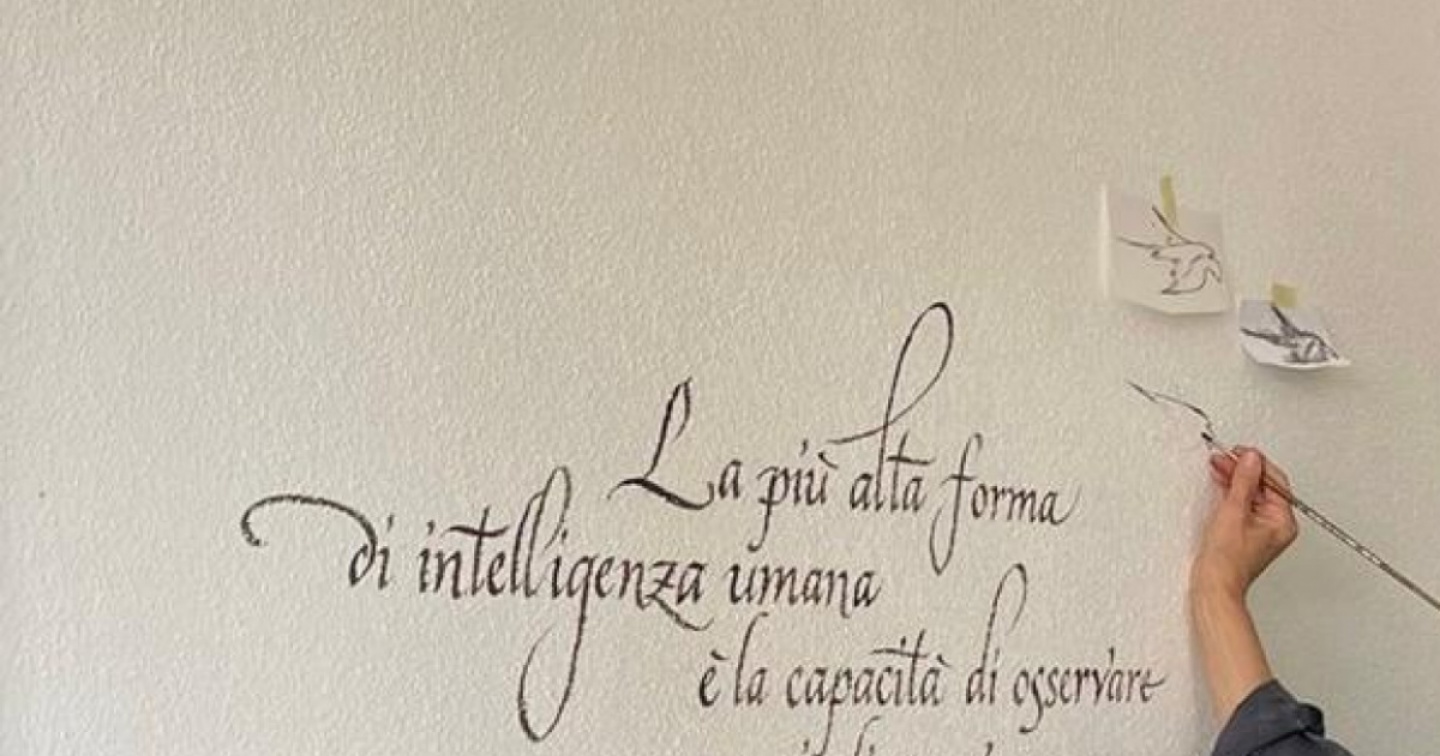 La più alta forma
di intelligenza umana
è la capacità di osservare